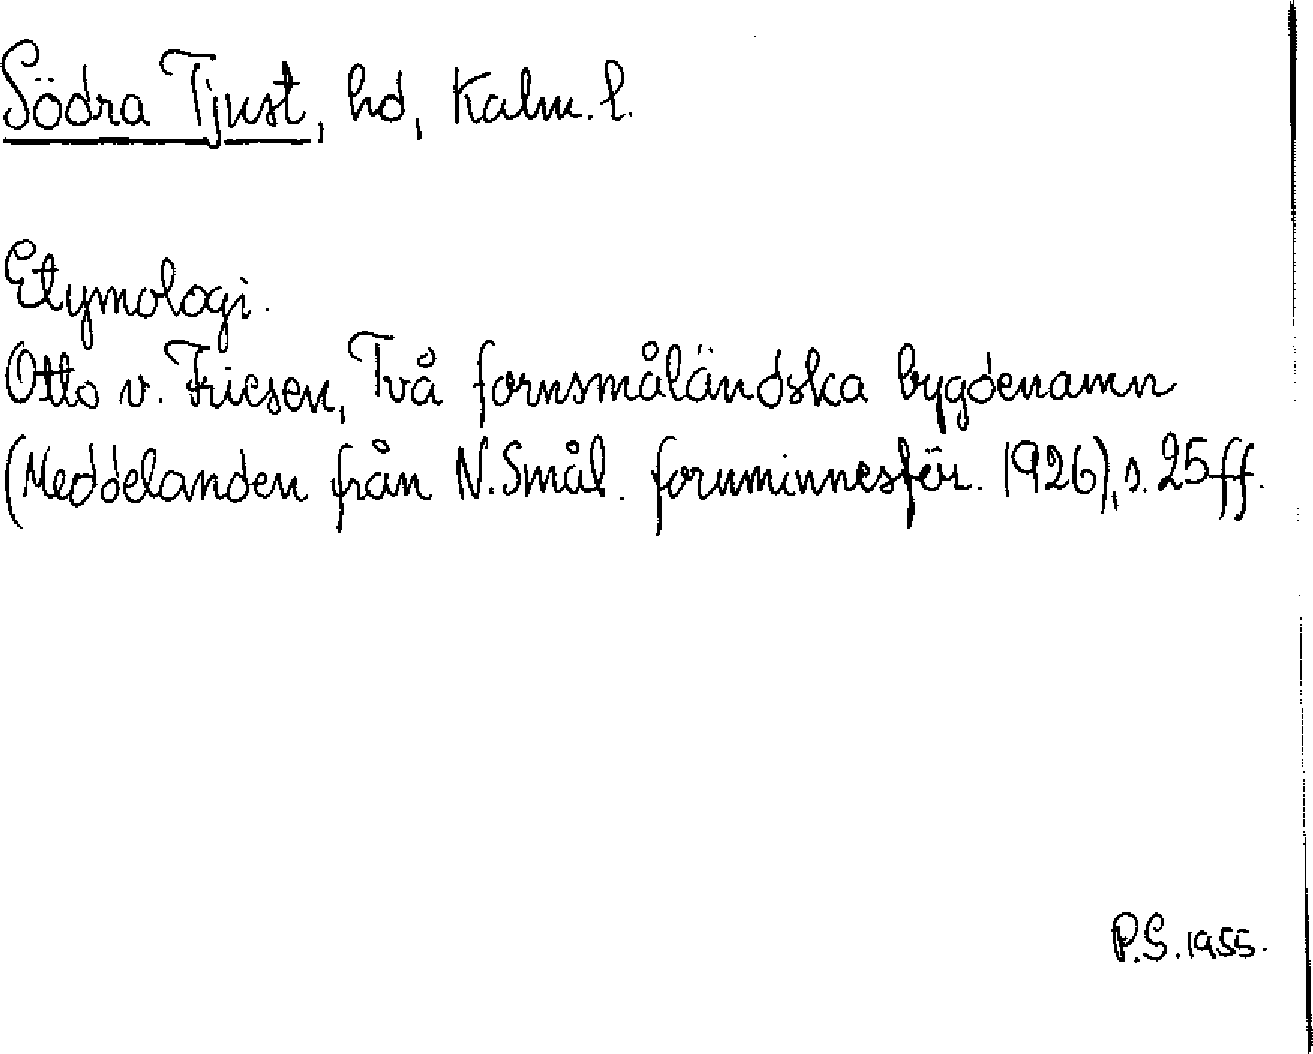 Södra Tjust, hd, Kalm. l.
Etymologi.
Otto v. Friesen, Två fornsmåländska bygdenamn
(Meddelanden från N. Smål. fornminnesför. 1926), s. 25 ff.
P.S. 1955.